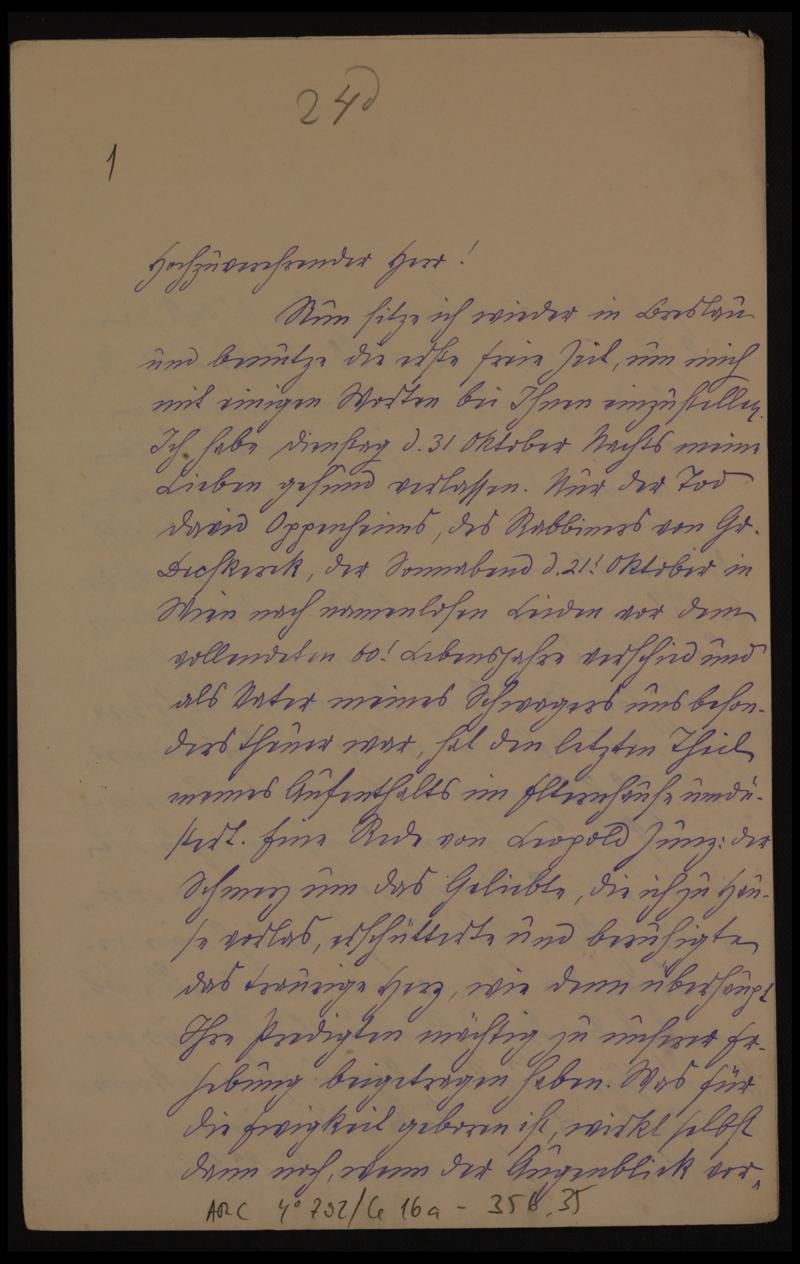 24d
1
Hochzuverehrender Herr!
Nun sitze ich wieder in Breslau
und benutze die erste freie Zeit, um mich
mit einigen Worten bei Ihnen einzustellen.
Ich habe Dienstag d. 31 Oktober Nachts meine
Lieben gesund verlassen. Nur der Tod
David Oppenheims, des Rabbiners von Gr.
Becskerek, der Sonnabend d. 21! Oktober in
Wien nach namenlosen Leiden vor dem
vollendeten 60! Lebensjahre verschied und
als Vater meines Schwagers uns beson-
ders theuer war, hat den letzten Theil
meines Aufenthalts im Elternhause umdü-
stert. Eine Rede von Leopold Zunz: der
Schmerz um das Geliebte, die ich zu Hau-
se vorlas, erschütterte und beruhigte
das traurige Herz, wie denn überhaupt
Ihre Predigten mächtig zu unserer Er-
hebung beigetragen haben. Was für
die Ewigkeit geboren ist, wirkt selbst
dann noch, wenn der Augenblick vor-
ARC 4° 792/G 16a - 358.35